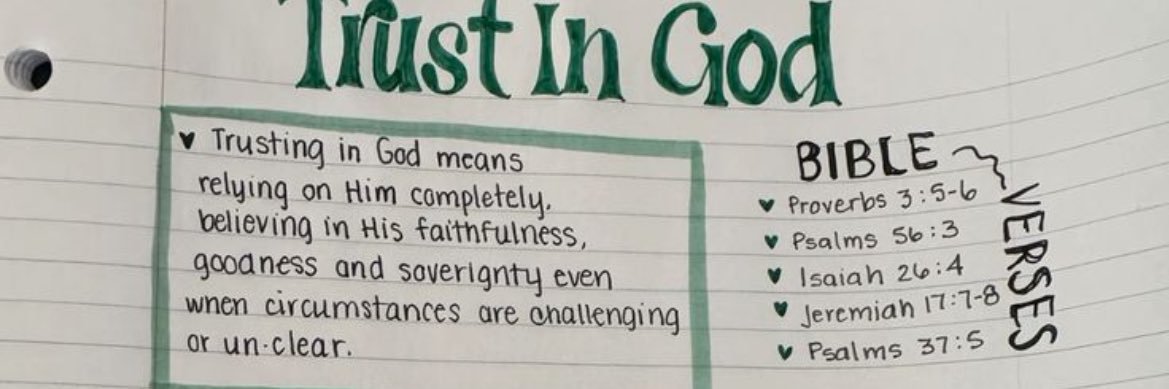 Trust In God
♥ Trusting in God means
relying on Him completely,
believing in His faithfulness,
goodness and soverignty even
when circumstances are challenging
or un-clear.
BIBLE
VERSES
♥ Proverbs 3:5-6
♥ Psalms 56:3
♥ Isaiah 26:4
♥ Jeremiah 17:7-8
♥ Psalms 37:5